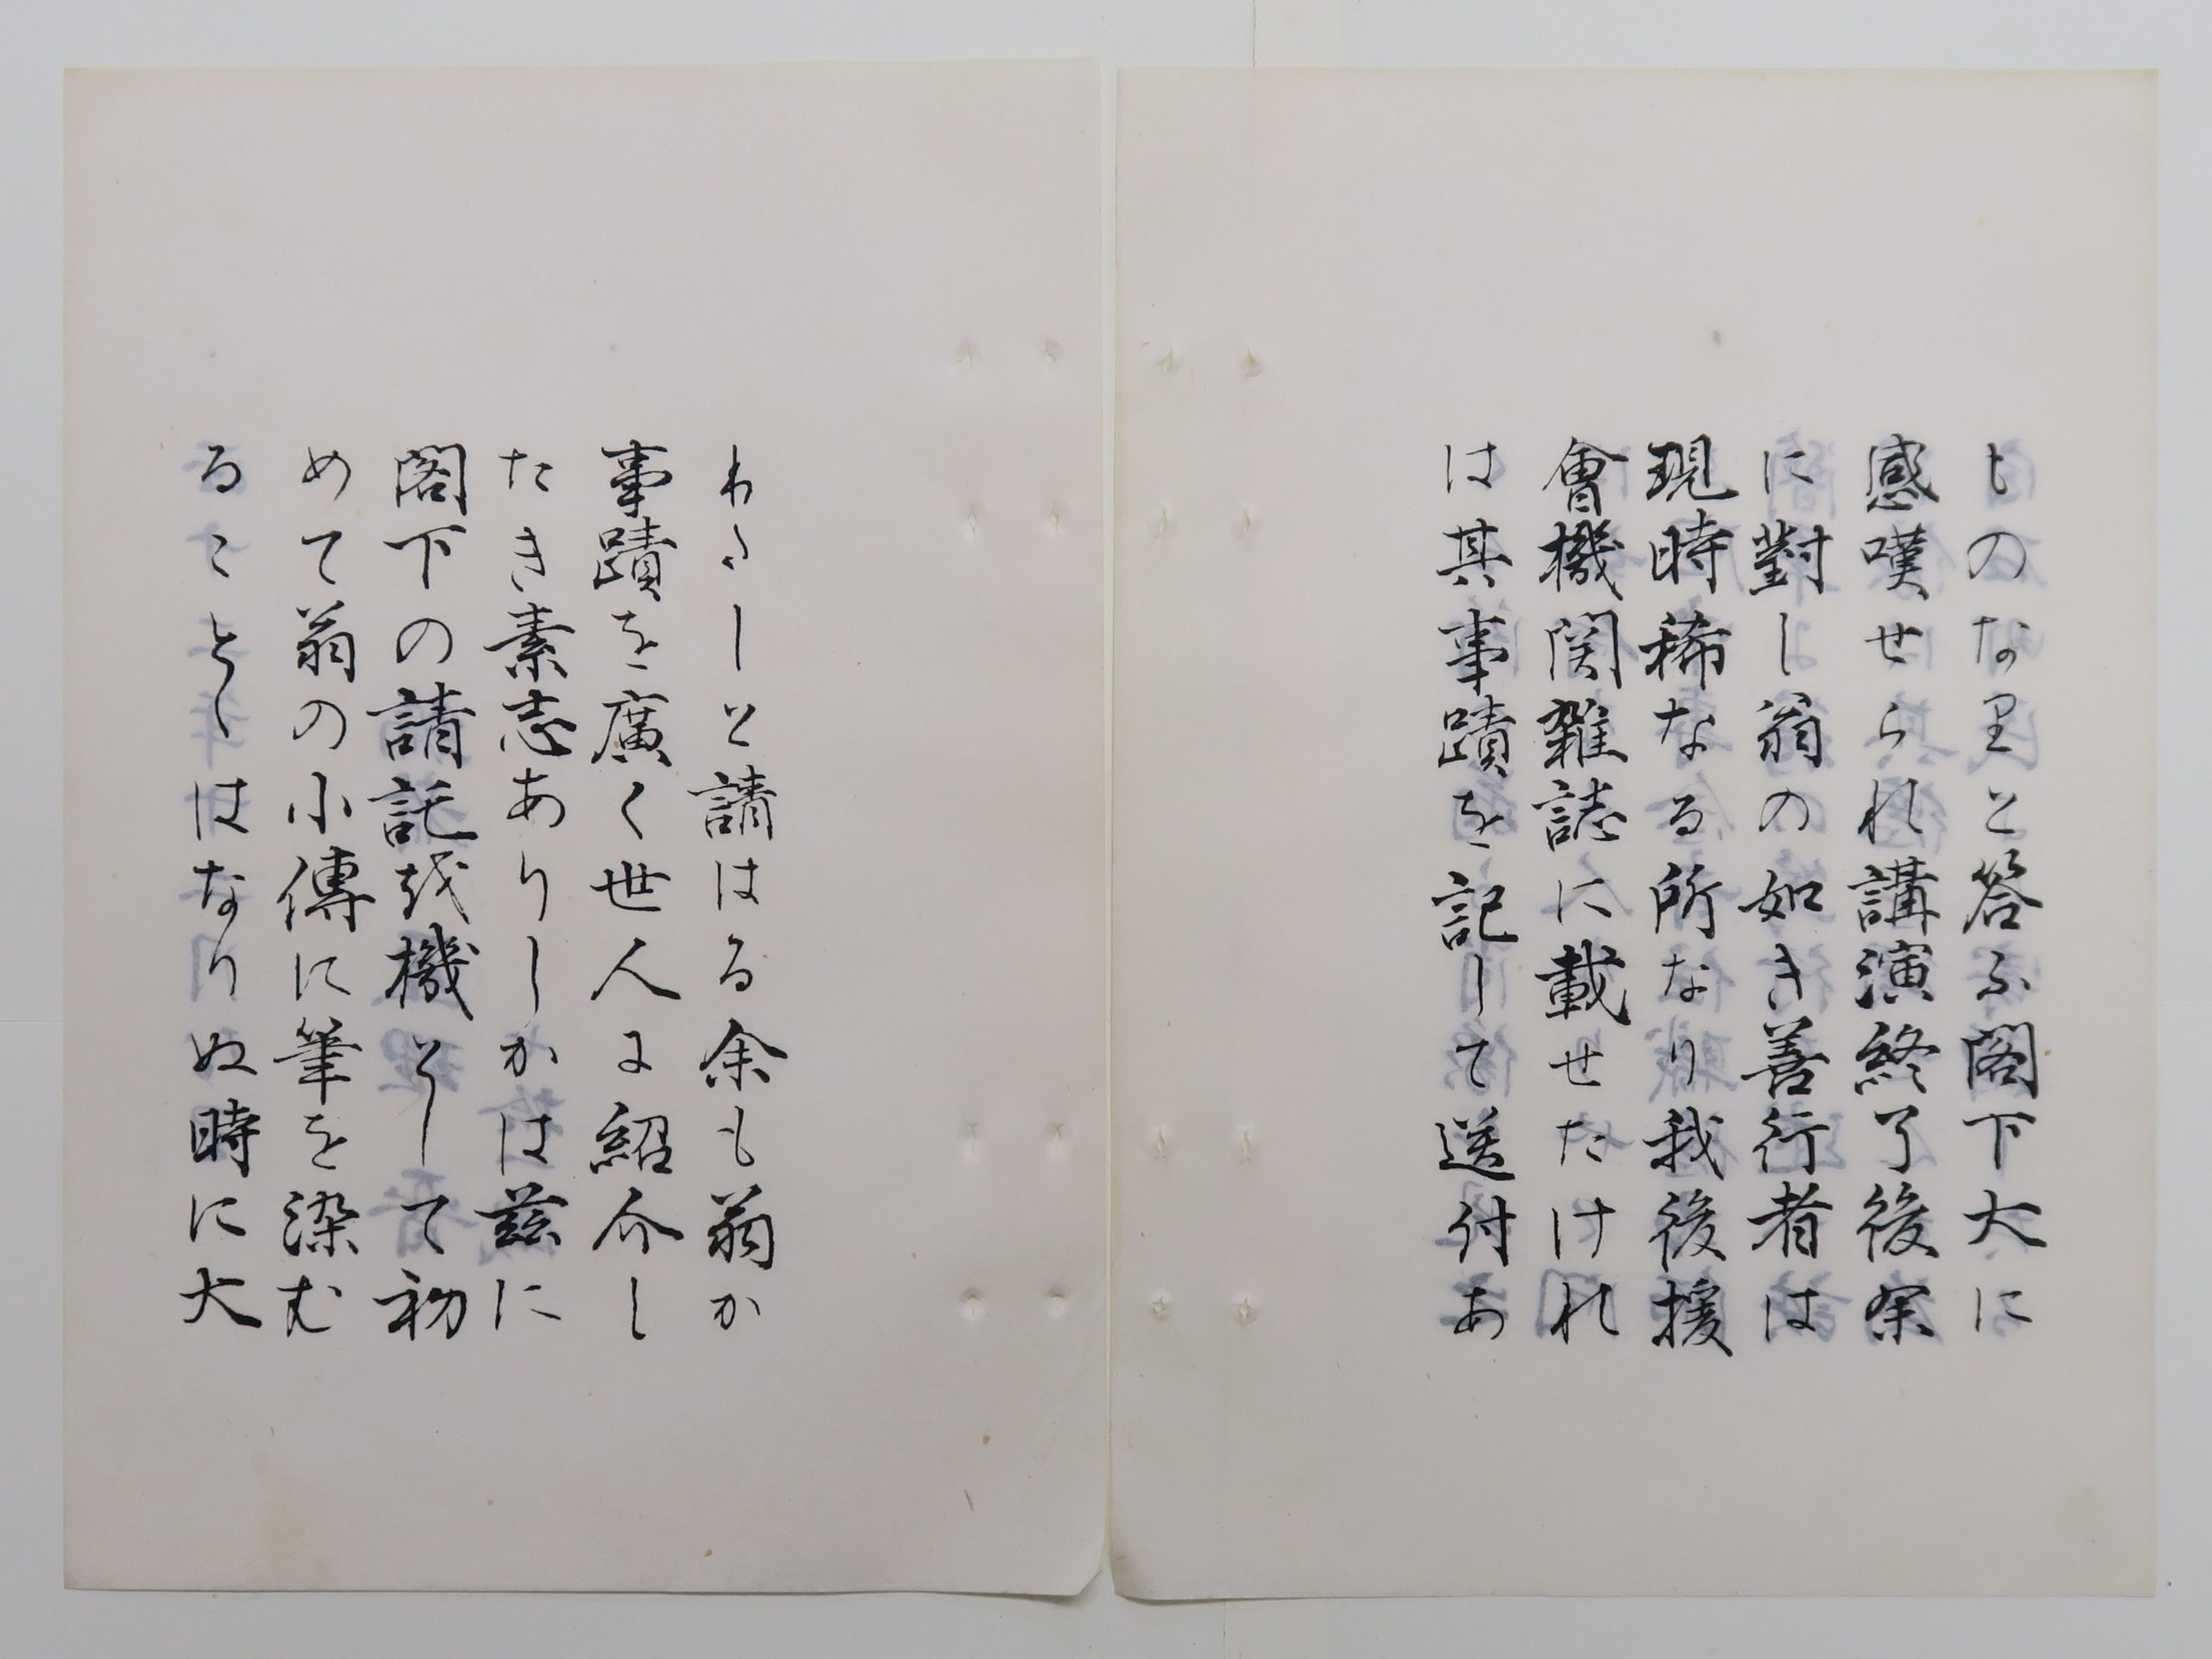 ものなりと答ふ閣下大に
感嘆せられ講演終了後余
に對し翁の如き善行者は
現時稀なる所なり我後援
會機関雑誌に載せたけれ
は其事蹟を記して送付あ
りたしと請はる余も翁か
事蹟を廣く世人に紹介し
たき素志ありしかは茲に
閣下の請託を機として初
めて翁の小傳に筆を染む
ることゝはなりぬ時に大